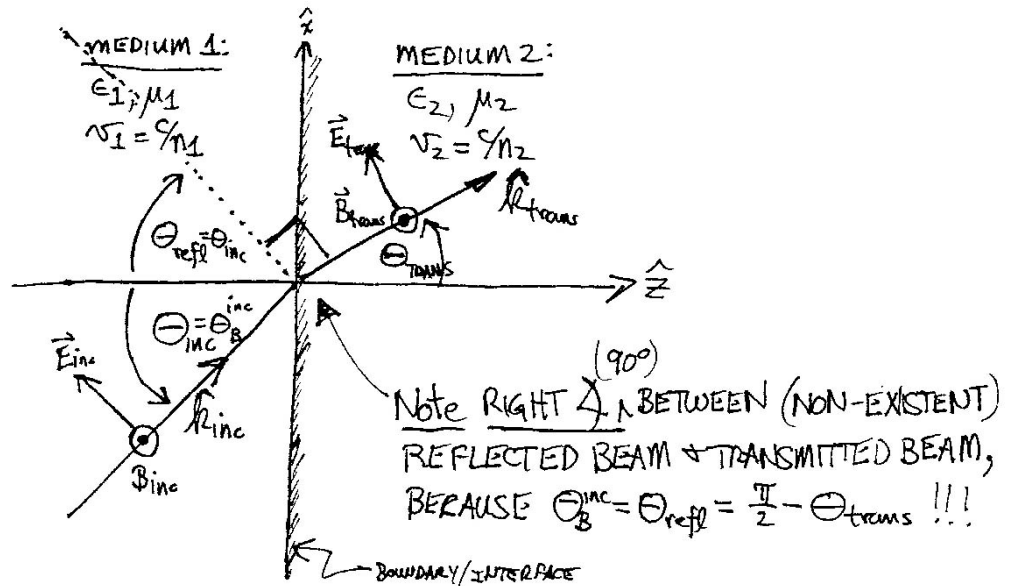 x̂
MEDIUM 1:
ε1, μ1
v1 = c/n1
MEDIUM 2:
ε2, μ2
v2 = c/n2
E⃗trans
B⃗trans
k̂trans
Θrefl=Θinc
ΘTRANS
ẑ
Θinc=ΘBinc
E⃗inc
k̂inc
Binc
(90°)
Note RIGHT ∡ ^ BETWEEN (NON-EXISTENT)
REFLECTED BEAM & TRANSMITTED BEAM,
BERAUSE ΘBinc = Θrefl = π/2 - Θtrans !!!
BOUNDARY/INTERFACE